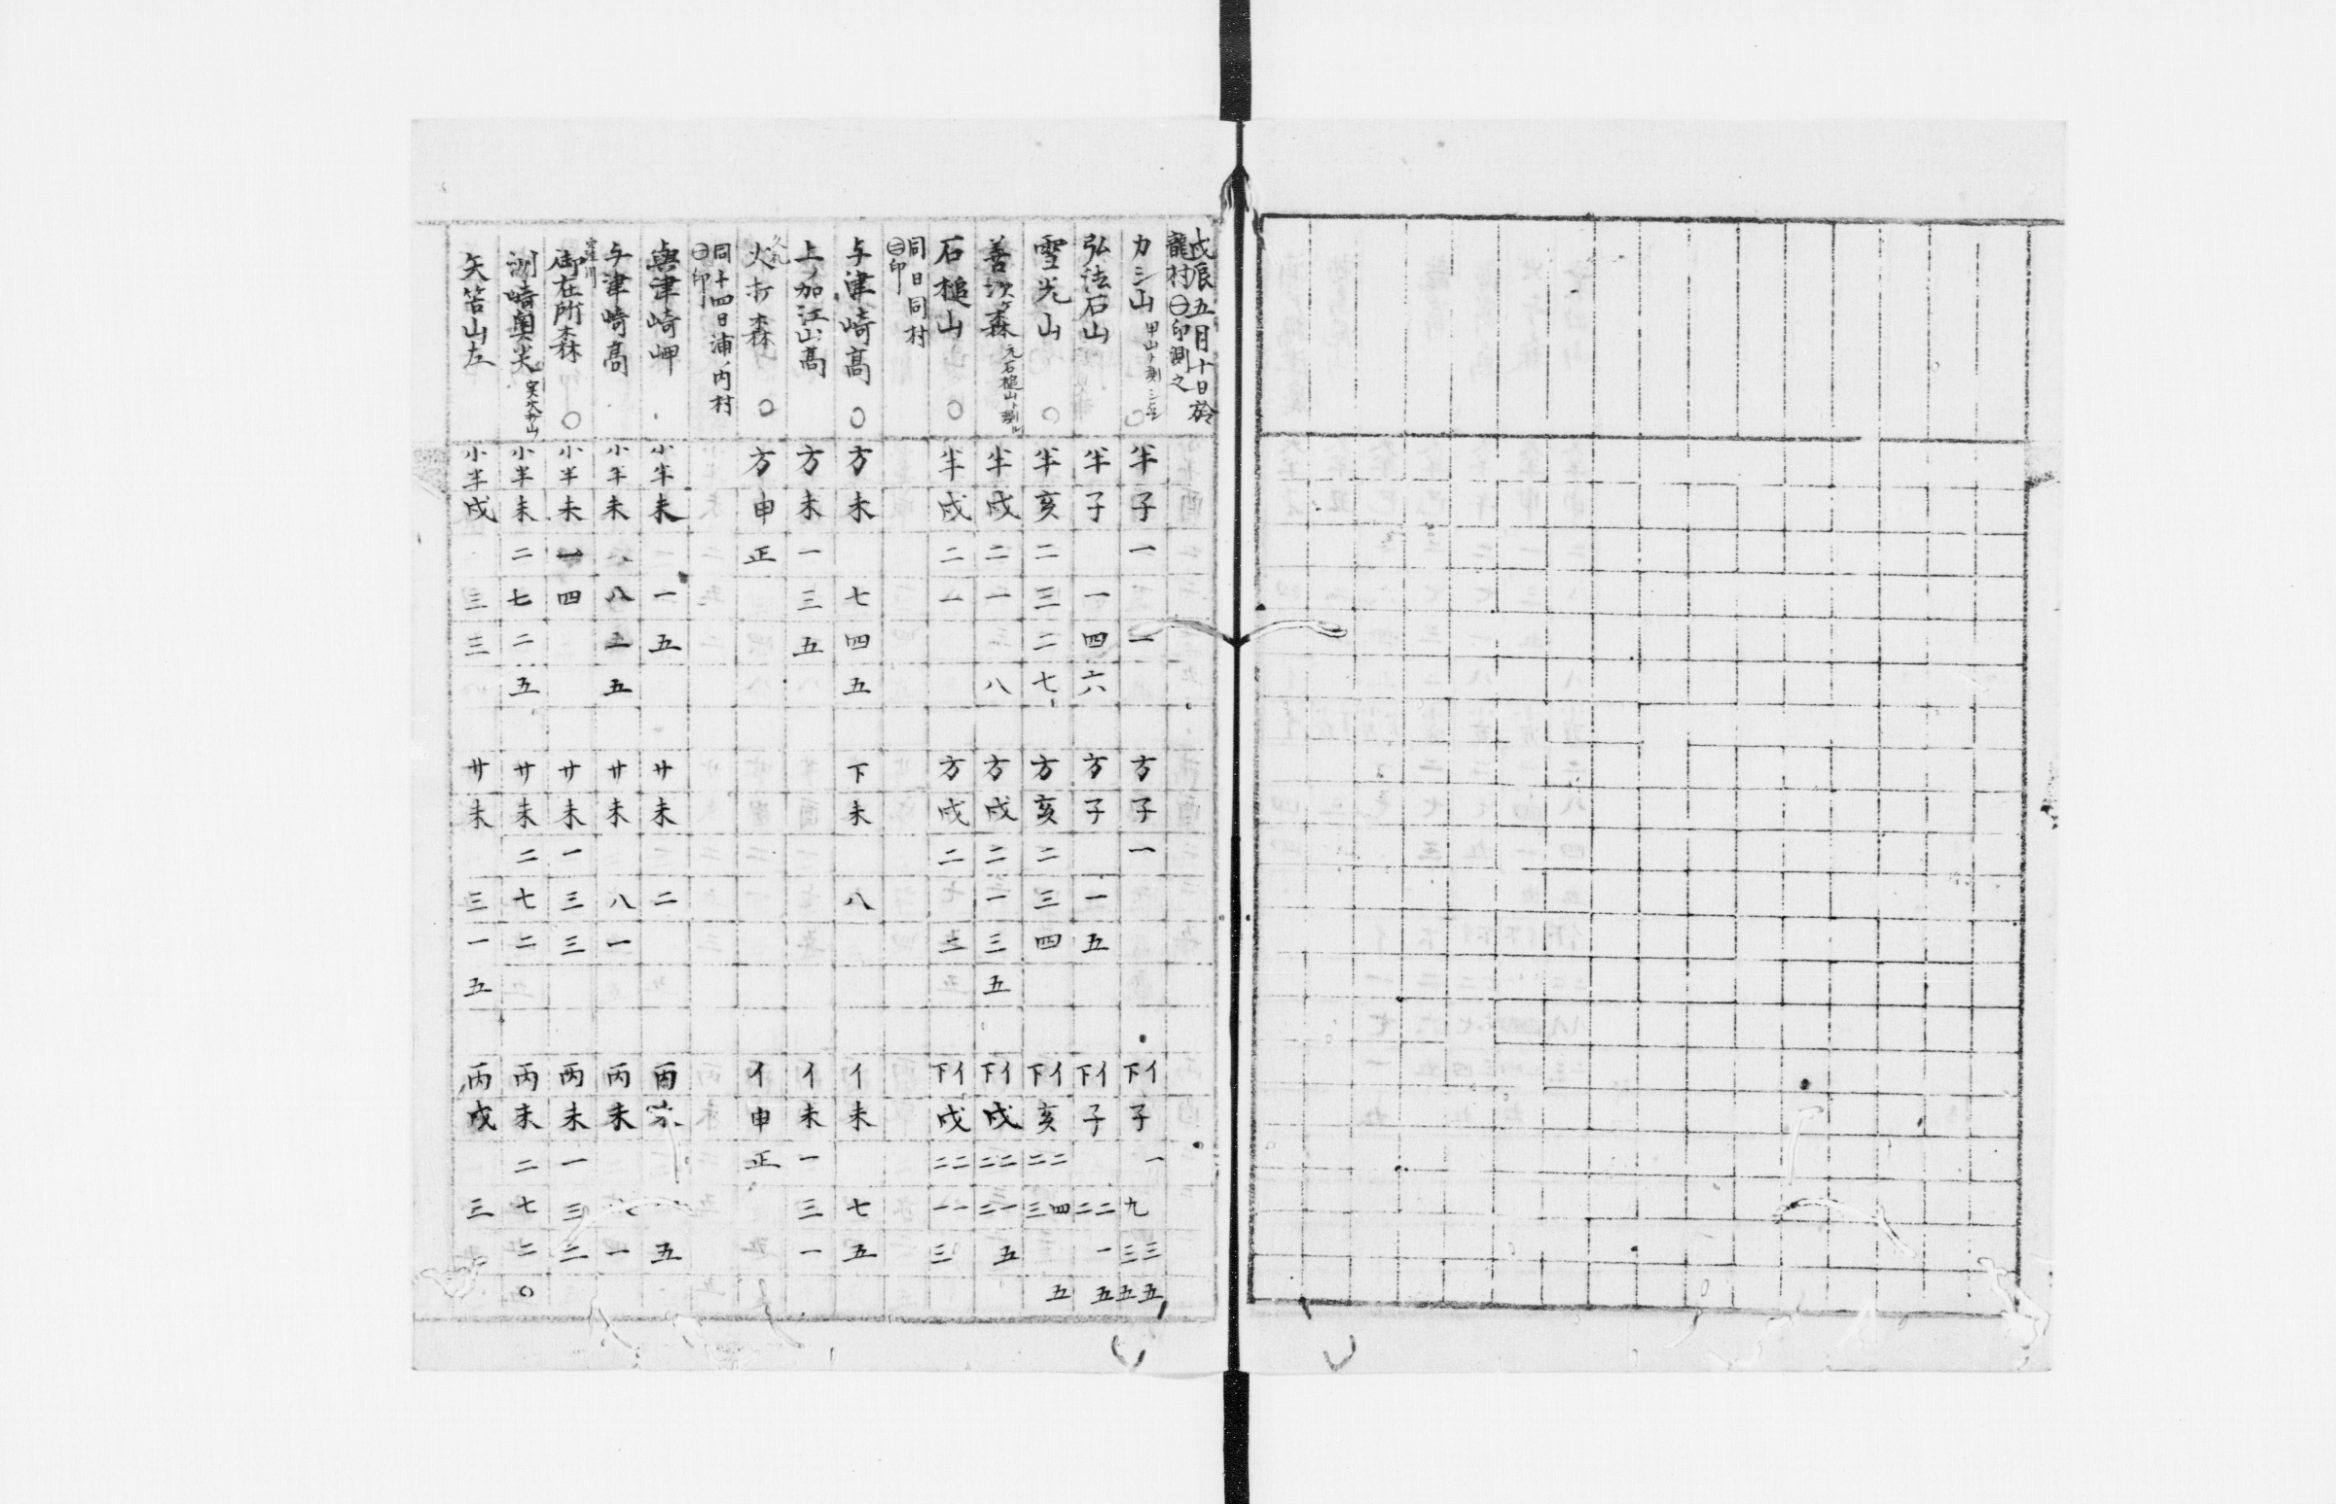 戊辰五月十日於
龍村㊀印測之
カシ山 半子一 一 方子一 下イ子一九三三五五
弘法石山 半子 一四六 方子 一五 下イ子 二二一五
聖光山 〇 半亥二三二七 方亥二三四 下イ亥二二三四五
善次ヶ森 半戌二一 八 方戌二一三五 下イ戌二二二一五
石槌山 〇 半戌二一 方戌二 下イ戌二二一一三
同日同村
㊁印
与津崎高 〇 方未 七四五 下未 八 イ未 七五
上ノ加江山高 方未一三五 イ未一三一
火打森 〇 方申正 イ申正
同十四日浦ノ内村
㊀印
與津崎岬 小半未 一五 廿未 二 丙未 五
与津崎高 小半未 八五五 廿未 八一 丙未 一
御在所森 〇 小半未 四 廿未一三三 丙未一三二
渕崎奥尖 小半未二七二五 廿未二七二 丙未二七二〇
矢筈山左 小半戌 三三 廿未 三一五 丙戌 三